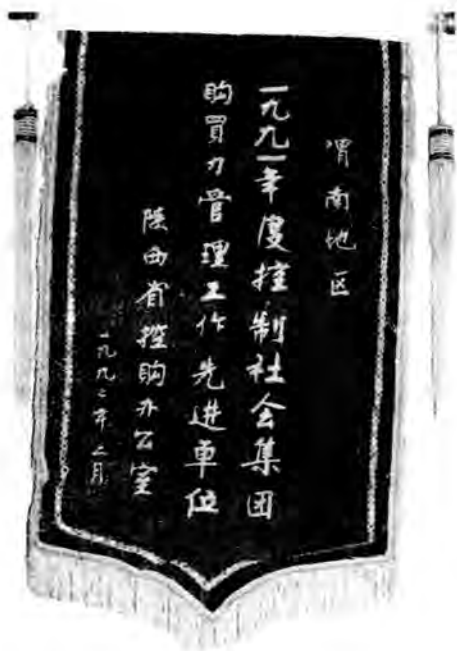 渭南地区
一九九一年度控制社会集团
购買力管理工作先进单位
陕西省控购办公室
一九九二年二月